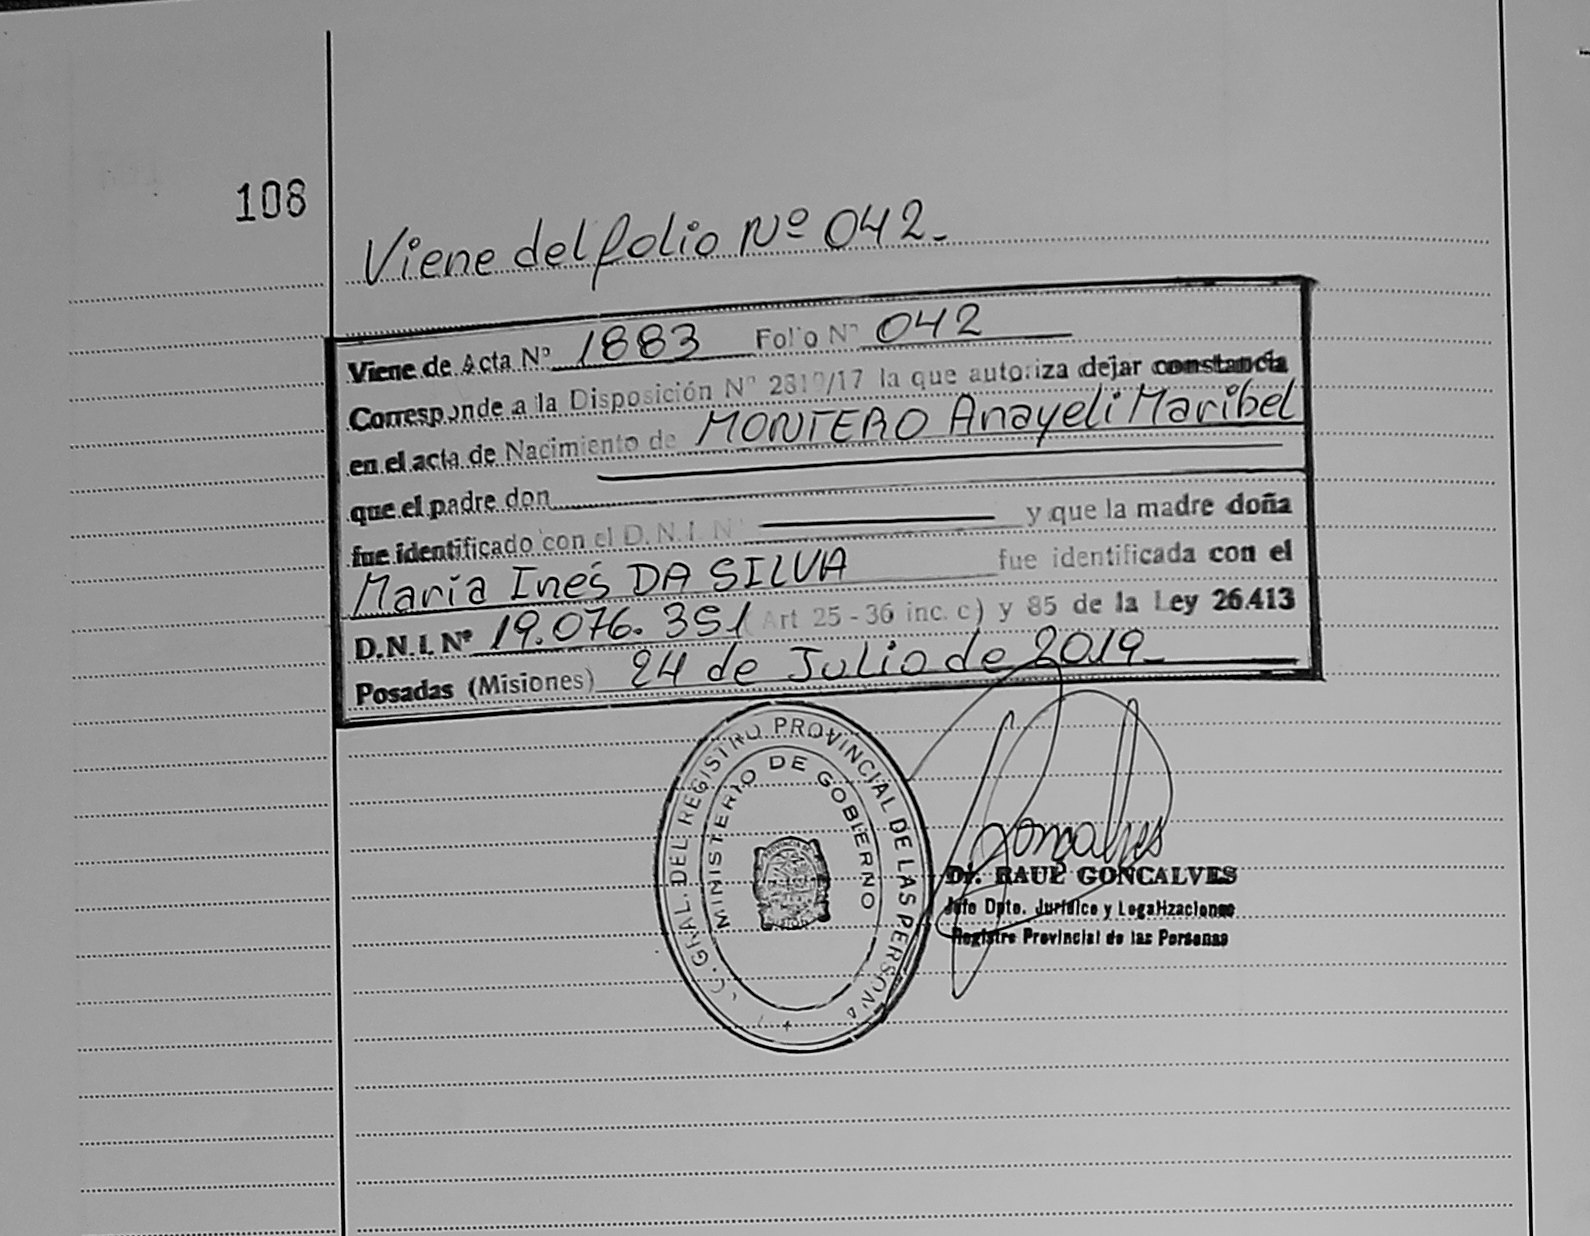 108
Viene del folio Nº 042.-
Viene de Acta Nº 1883 Folio Nº 042
Corresponde a la Disposición Nº 2319/17 la que autoriza dejar constancia
en el acta de Nacimiento de MONTERO Anayeli Maribel
que el padre don
fue identificado con el D.N.I. Nº y que la madre doña
Maria Inés DA SILVA fue identificada con el
D.N.I. Nº 19.076.351 (Art 25 - 36 inc. c) y 85 de la Ley 26.413
Posadas (Misiones) 24 de Julio de 2019.-
GRAL. DEL REGISTRO PROVINCIAL DE LAS PERSONA
MINISTERIO DE GOBIERNO
Goncalves
Dr. RAUL GONCALVES
Jefe Dpto. Jurídico y Legalizaciones
Registro Provincial de las Personas